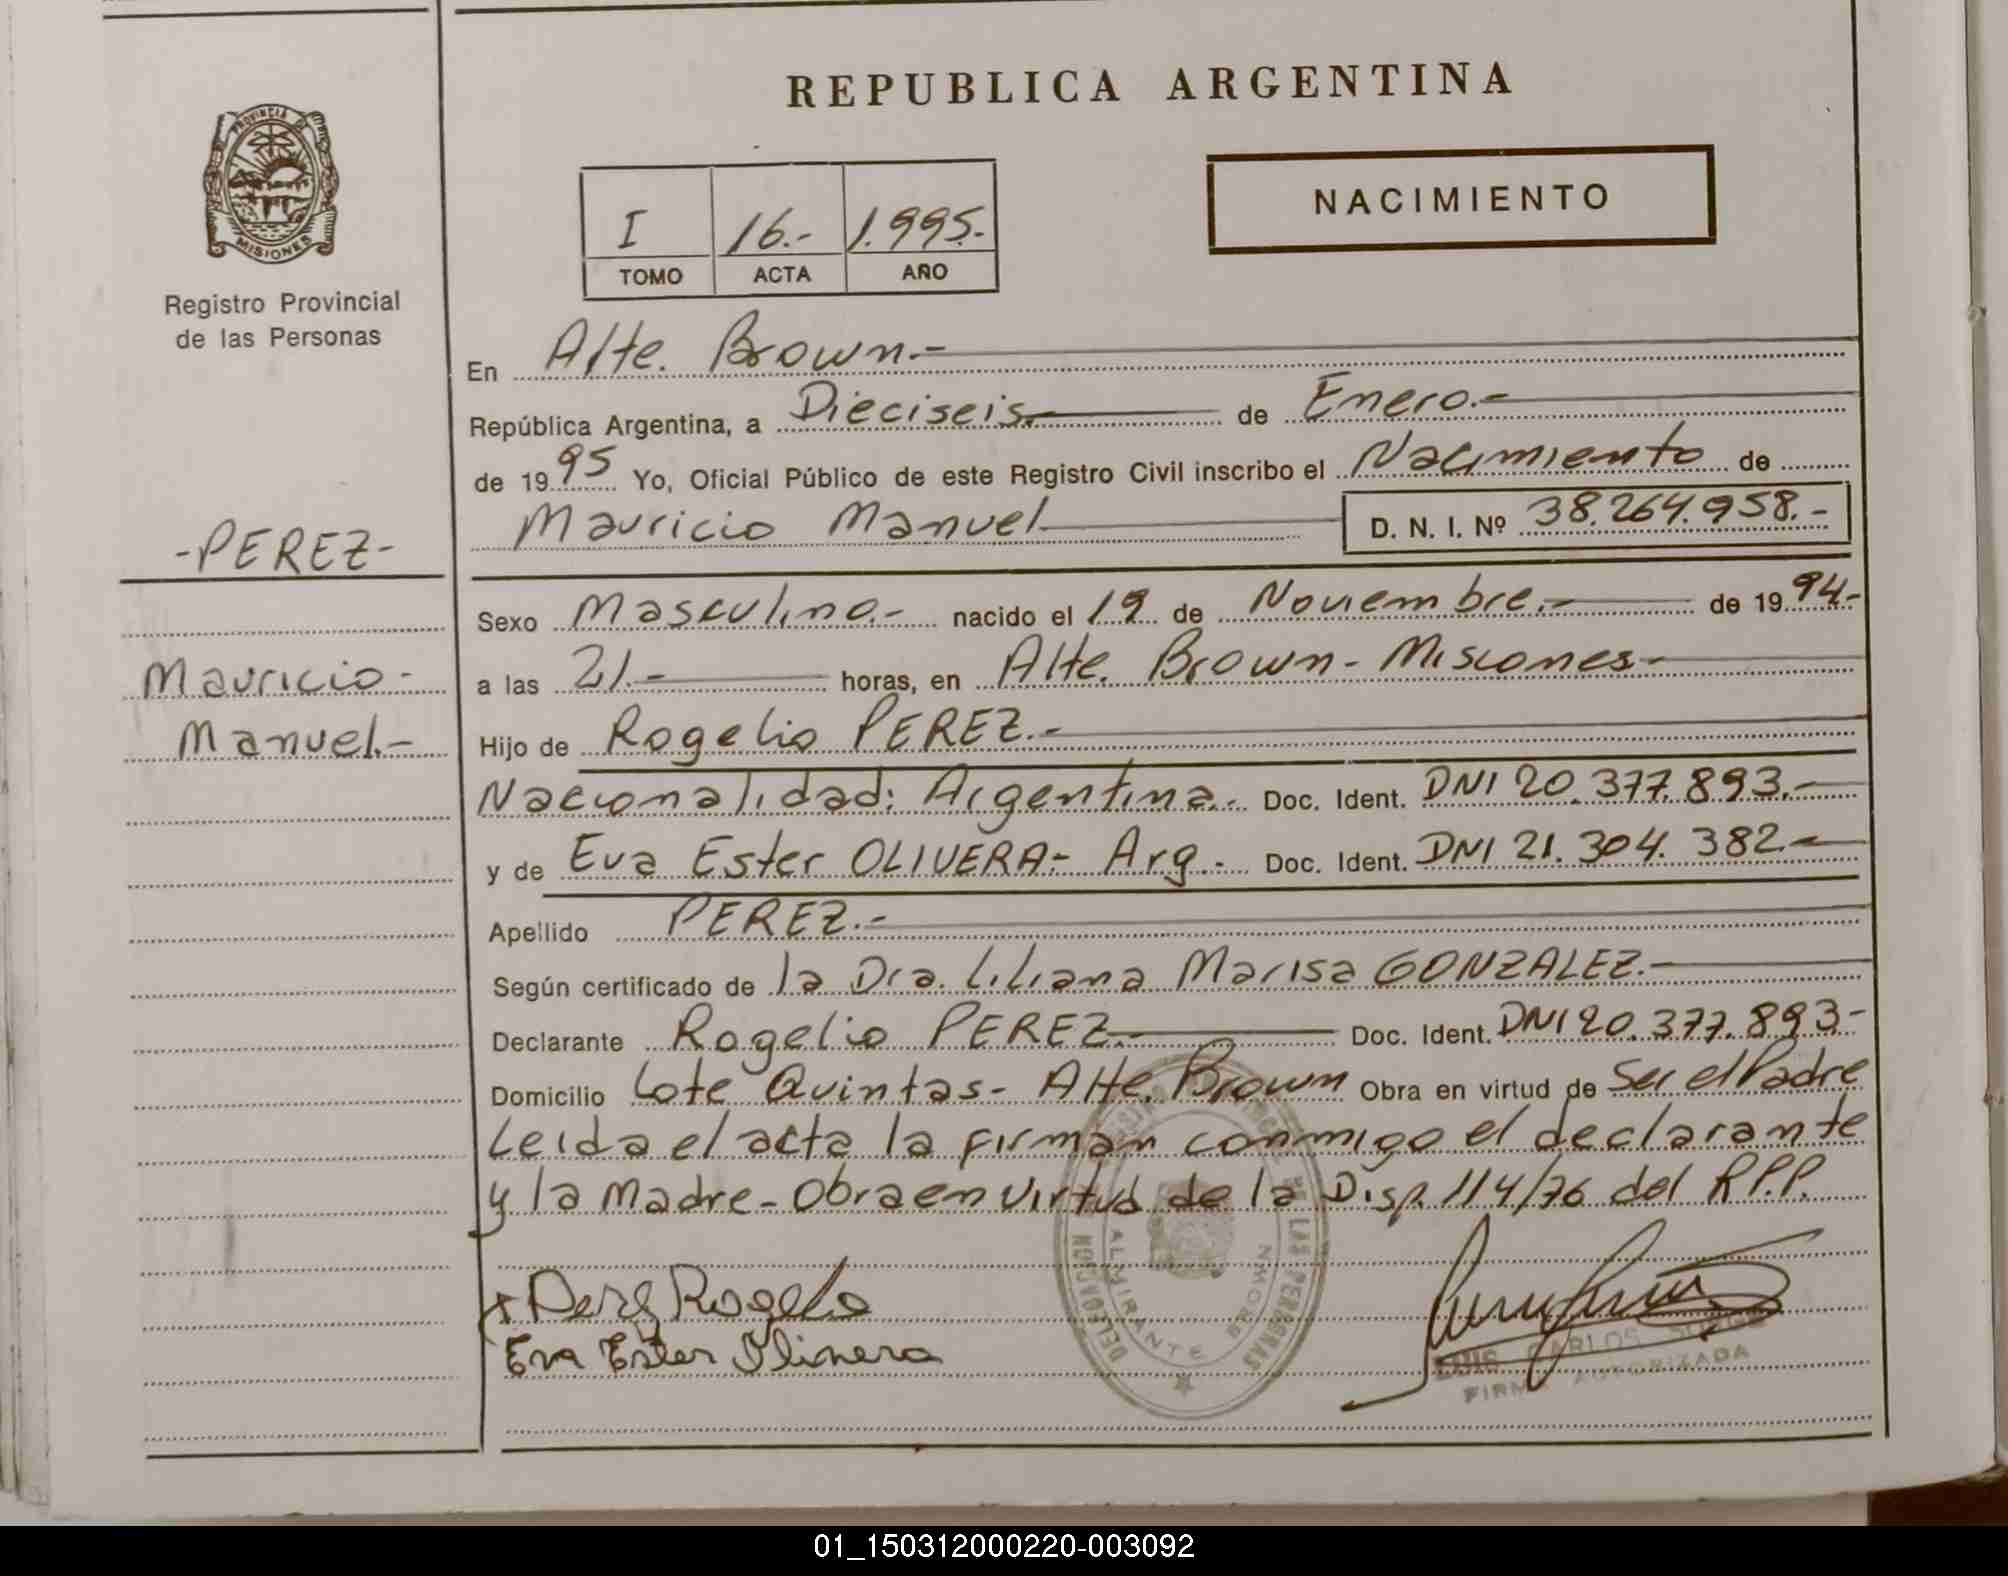 REPUBLICA ARGENTINA
PROVINCIA DE
MISIONES
Registro Provincial
de las Personas
NACIMIENTO
I 16.- 1.995.-
TOMO ACTA AÑO
En Alte. Brown.-
República Argentina, a Dieciseis.- de Enero.-
de 1995 Yo, Oficial Público de este Registro Civil inscribo el Nacimiento de
Mauricio Manuel D. N. I. Nº 38.264.958.-
-PEREZ-
Mauricio-
Manuel.-
Sexo Masculino.- nacido el 19 de Noviembre.- de 1994.-
a las 21.- horas, en Alte. Brown- Misiones-
Hijo de Rogelio PEREZ.-
Nacionalidad: Argentina.- Doc. Ident. DNI 20.377.893.-
y de Eva Ester OLIVERA- Arg.- Doc. Ident. DNI 21.304.382.-
Apellido PEREZ.-
Según certificado de la Dra. Liliana Marisa GONZALEZ.-
Declarante Rogelio PEREZ.- Doc. Ident. DNI 20.377.893-
Domicilio Lote Quintas- Alte. Brown Obra en virtud de Ser el Padre
Leida el acta la firman conmigo el declarante
y la Madre- Obra en virtud de la Disp. 114/76 del R.P.P.
Perez Rogelio
Eva Ester Olivera
DELEGACION
DE LAS PERSONAS
ALMIRANTE BROWN
LUIS CARLOS
FIRMA AUTORIZADA
01_150312000220-003092